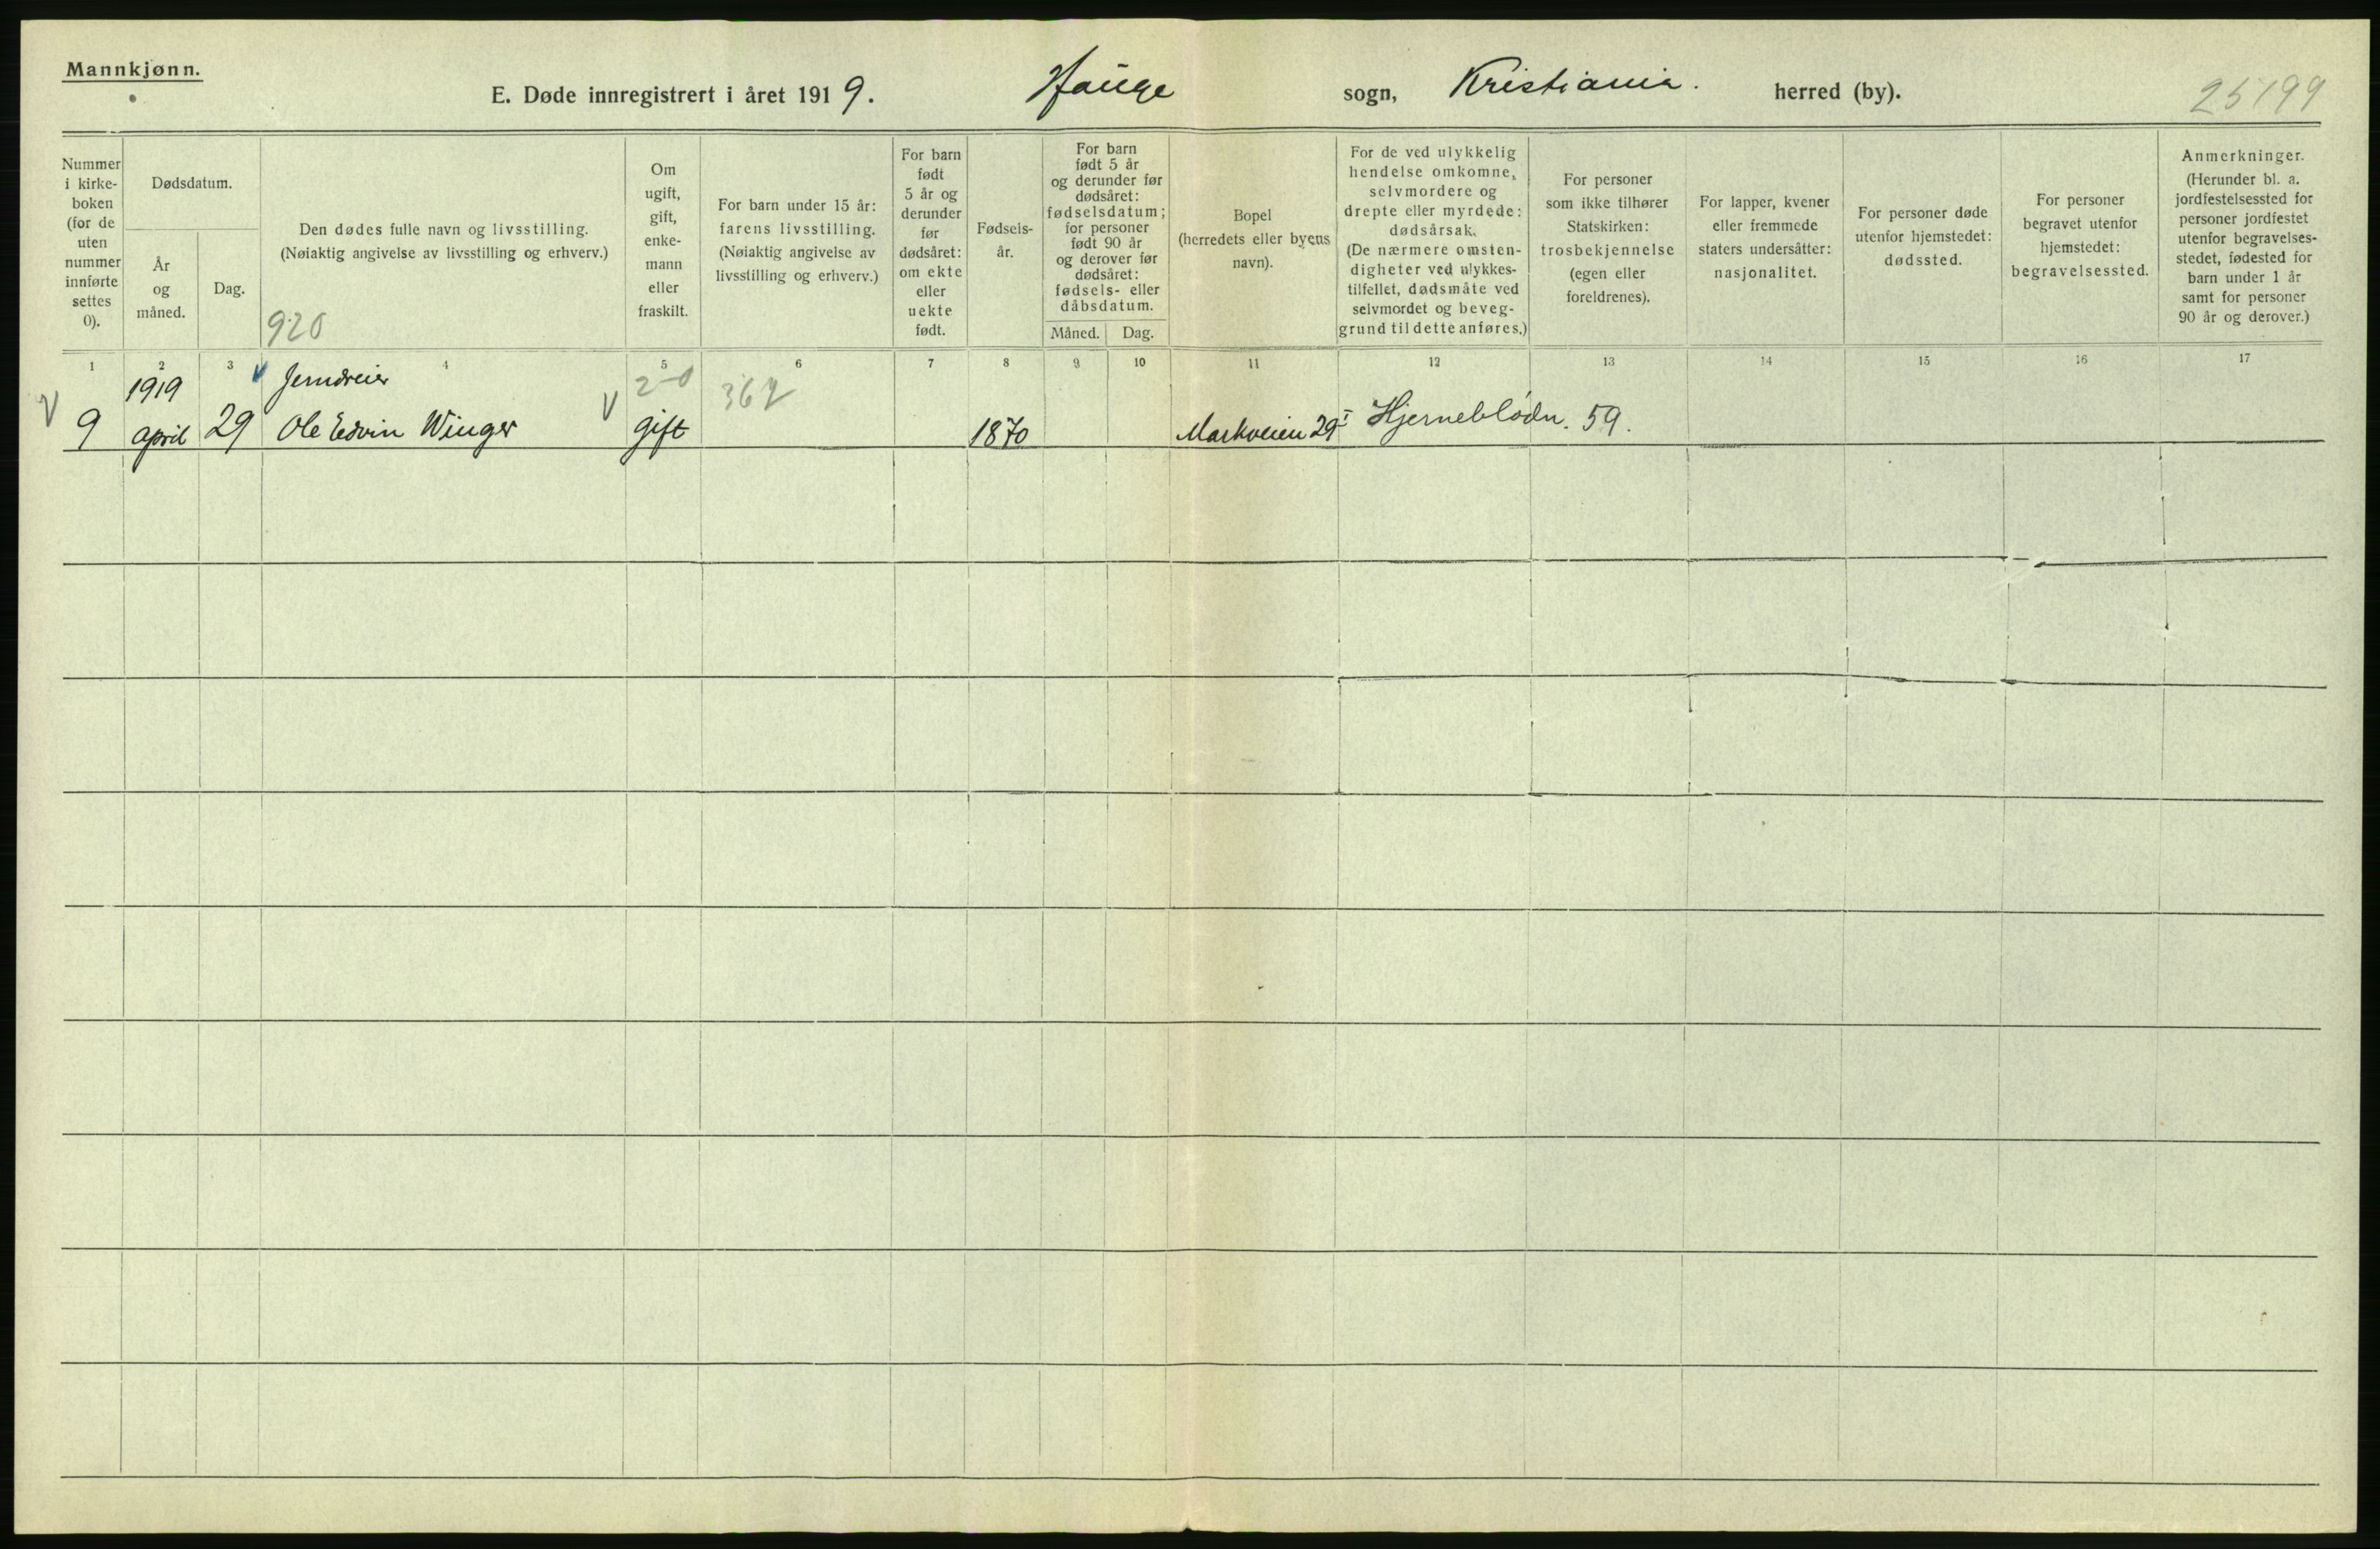 Mannkjønn.
E. Døde innregistrert i året 1919. Hauge sogn, Kristiania. herred (by).
25199
Nummer
i kirke-
boken
(for de
uten
nummer
innførte
settes
0).
Dødsdatum.
År
og
måned.
Dag.
Den dødes fulle navn og livsstilling.
(Nøiaktig angivelse av livsstilling og erhverv.)
920
Om
ugift,
gift,
enke-
mann
eller
fraskilt.
For barn under 15 år:
farens livsstilling.
(Nøiaktig angivelse av
livsstilling og erhverv.)
For barn
født
5 år og
derunder
før
dødsåret:
om ekte
eller
uekte
født.
Fødsels-
år.
For barn
født 5 år
og derunder før
dødsåret:
fødselsdatum;
for personer
født 90 år
og derover før
dødsåret:
fødsels- eller
dåbsdatum.
Måned. Dag.
Bopel
(herredets eller byens
navn).
For de ved ulykkelig
hendelse omkomne,
selvmordere og
drepte eller myrdede:
dødsårsak.
(De nærmere omsten-
digheter ved ulykkes-
tilfellet, dødsmåte ved
selvmordet og beveg-
grund til dette anføres.)
For personer
som ikke tilhører
Statskirken:
trosbekjennelse
(egen eller
foreldrenes).
For lapper, kvener
eller fremmede
staters undersåtter:
nasjonalitet.
For personer døde
utenfor hjemstedet:
dødssted.
For personer
begravet utenfor
hjemstedet:
begravelsessted.
Anmerkninger.
(Herunder bl. a.
jordfestelsessted for
personer jordfestet
utenfor begravelses-
stedet, fødested for
barn under 1 år
samt for personer
90 år og derover.)
1 2 3 4 5 6 7 8 9 10 11 12 13 14 15 16 17
1919 Jerndreier 2-0 367
9 april 29 Ole Edvin Winger gift 1870 Markveien 29 I Hjerneblødn. 59.